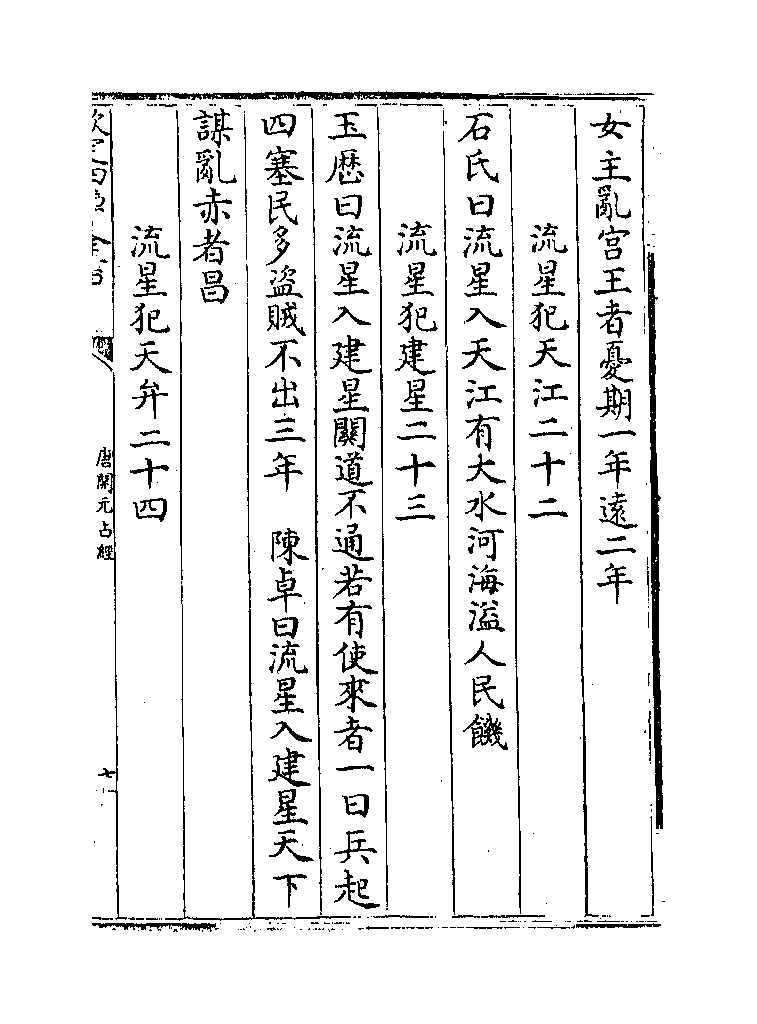 女主亂宫王者憂期一年遠二年
流星犯天江二十二
石氏曰流星入天江有大水河海溢人民饑
流星犯建星二十三
玉歴曰流星入建星闗道不通若有使來者一曰兵起
四塞民多盗賊不出三年　陳卓曰流星入建星天下
謀亂赤者昌
流星犯天弁二十四
唐開元占經
七